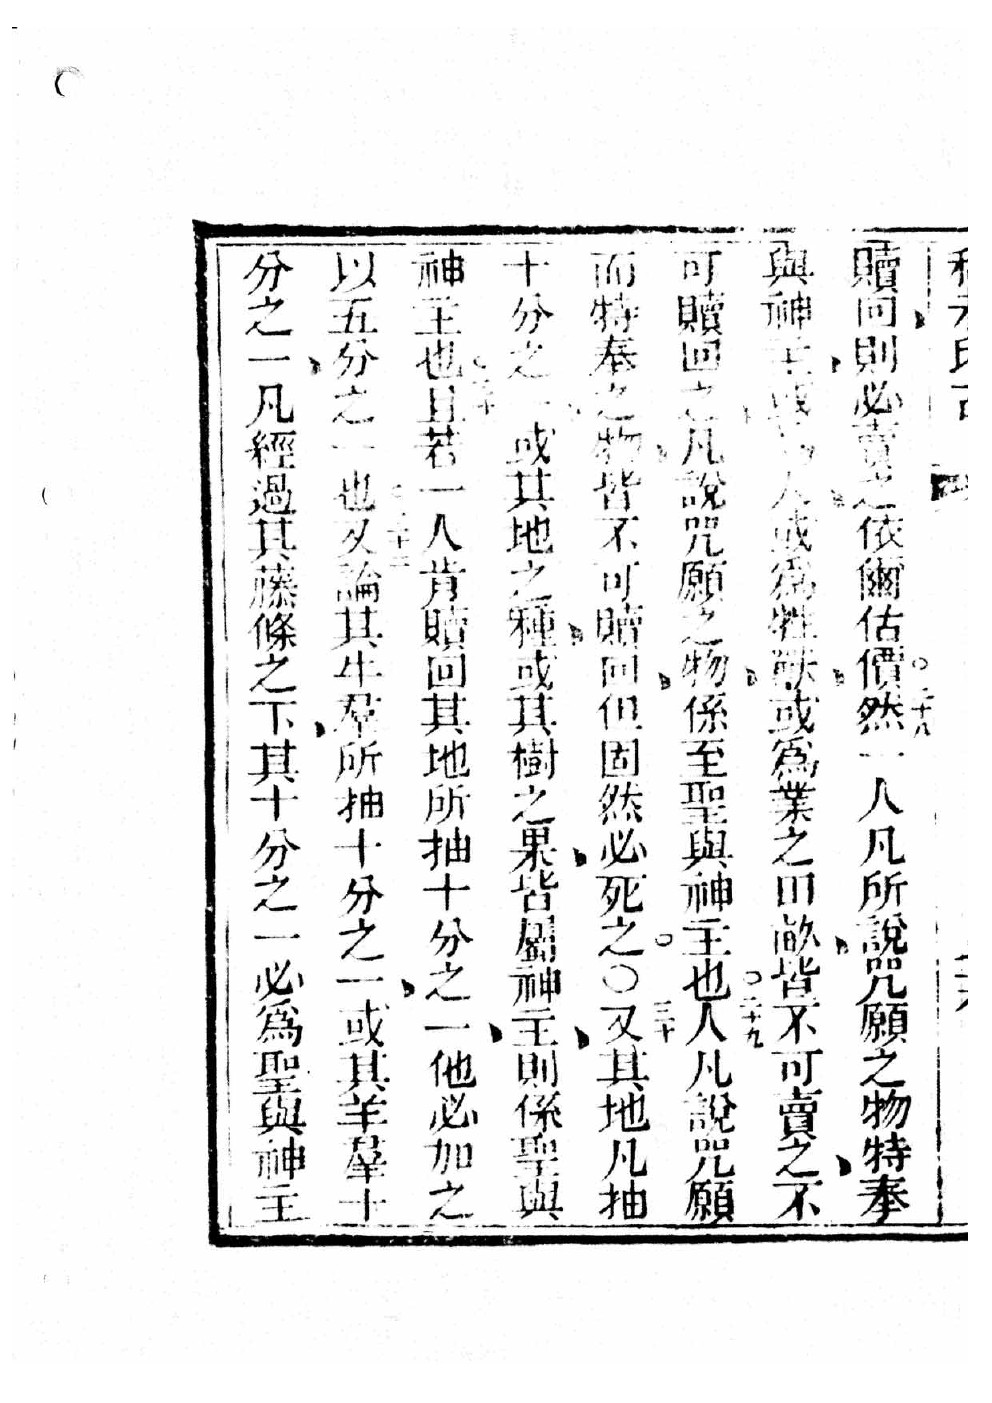 贖回則必賣之依爾估價○二十八然一人凡所說咒願之物特奉
與神主或人或爲牲獸或爲業之田畝皆不可賣之不
可贖回之凡說咒願之物係至聖與神主也○二十九人凡說咒願
而特奉之物皆不可贖回但固然必死之○三十○又其地凡抽
十分之一或其地之種或其樹之果皆屬神主則係聖與
神主也且若一人肯贖回其地所抽十分之一他必加之
以五分之一也○三十二又論其牛羣所抽十分之一或其羊羣十
分之一凡經過其藤條之下其十分之一必爲聖與神主